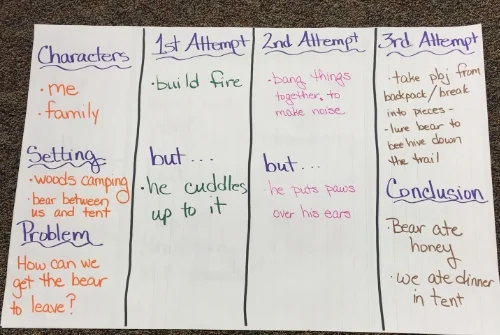 Characters
· me
· family
Setting
· woods camping
· bear between
us and tent
Problem
How can we
get the bear
to leave?
1st Attempt
· build fire
but...
· he cuddles
up to it
2nd Attempt
· bang things
together to
make noise
but...
· he puts paws
over his ears
3rd Attempt
· take pbj from
backpack/break
into pieces -
· lure bear to
bee hive down
the trail
Conclusion
· Bear ate
honey
· we ate dinner
in tent